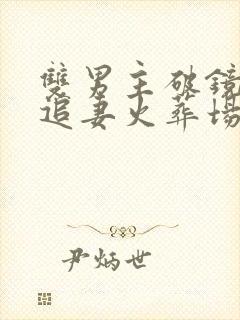 雙男主破鏡
追妻火葬場
尹炳世